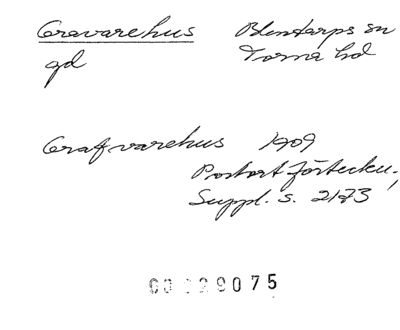 Gravarehus Blentarps sn
gd Torna hd
Grafvarehus 1909
Postort förteckn.,
Suppl. s. 2173
29075